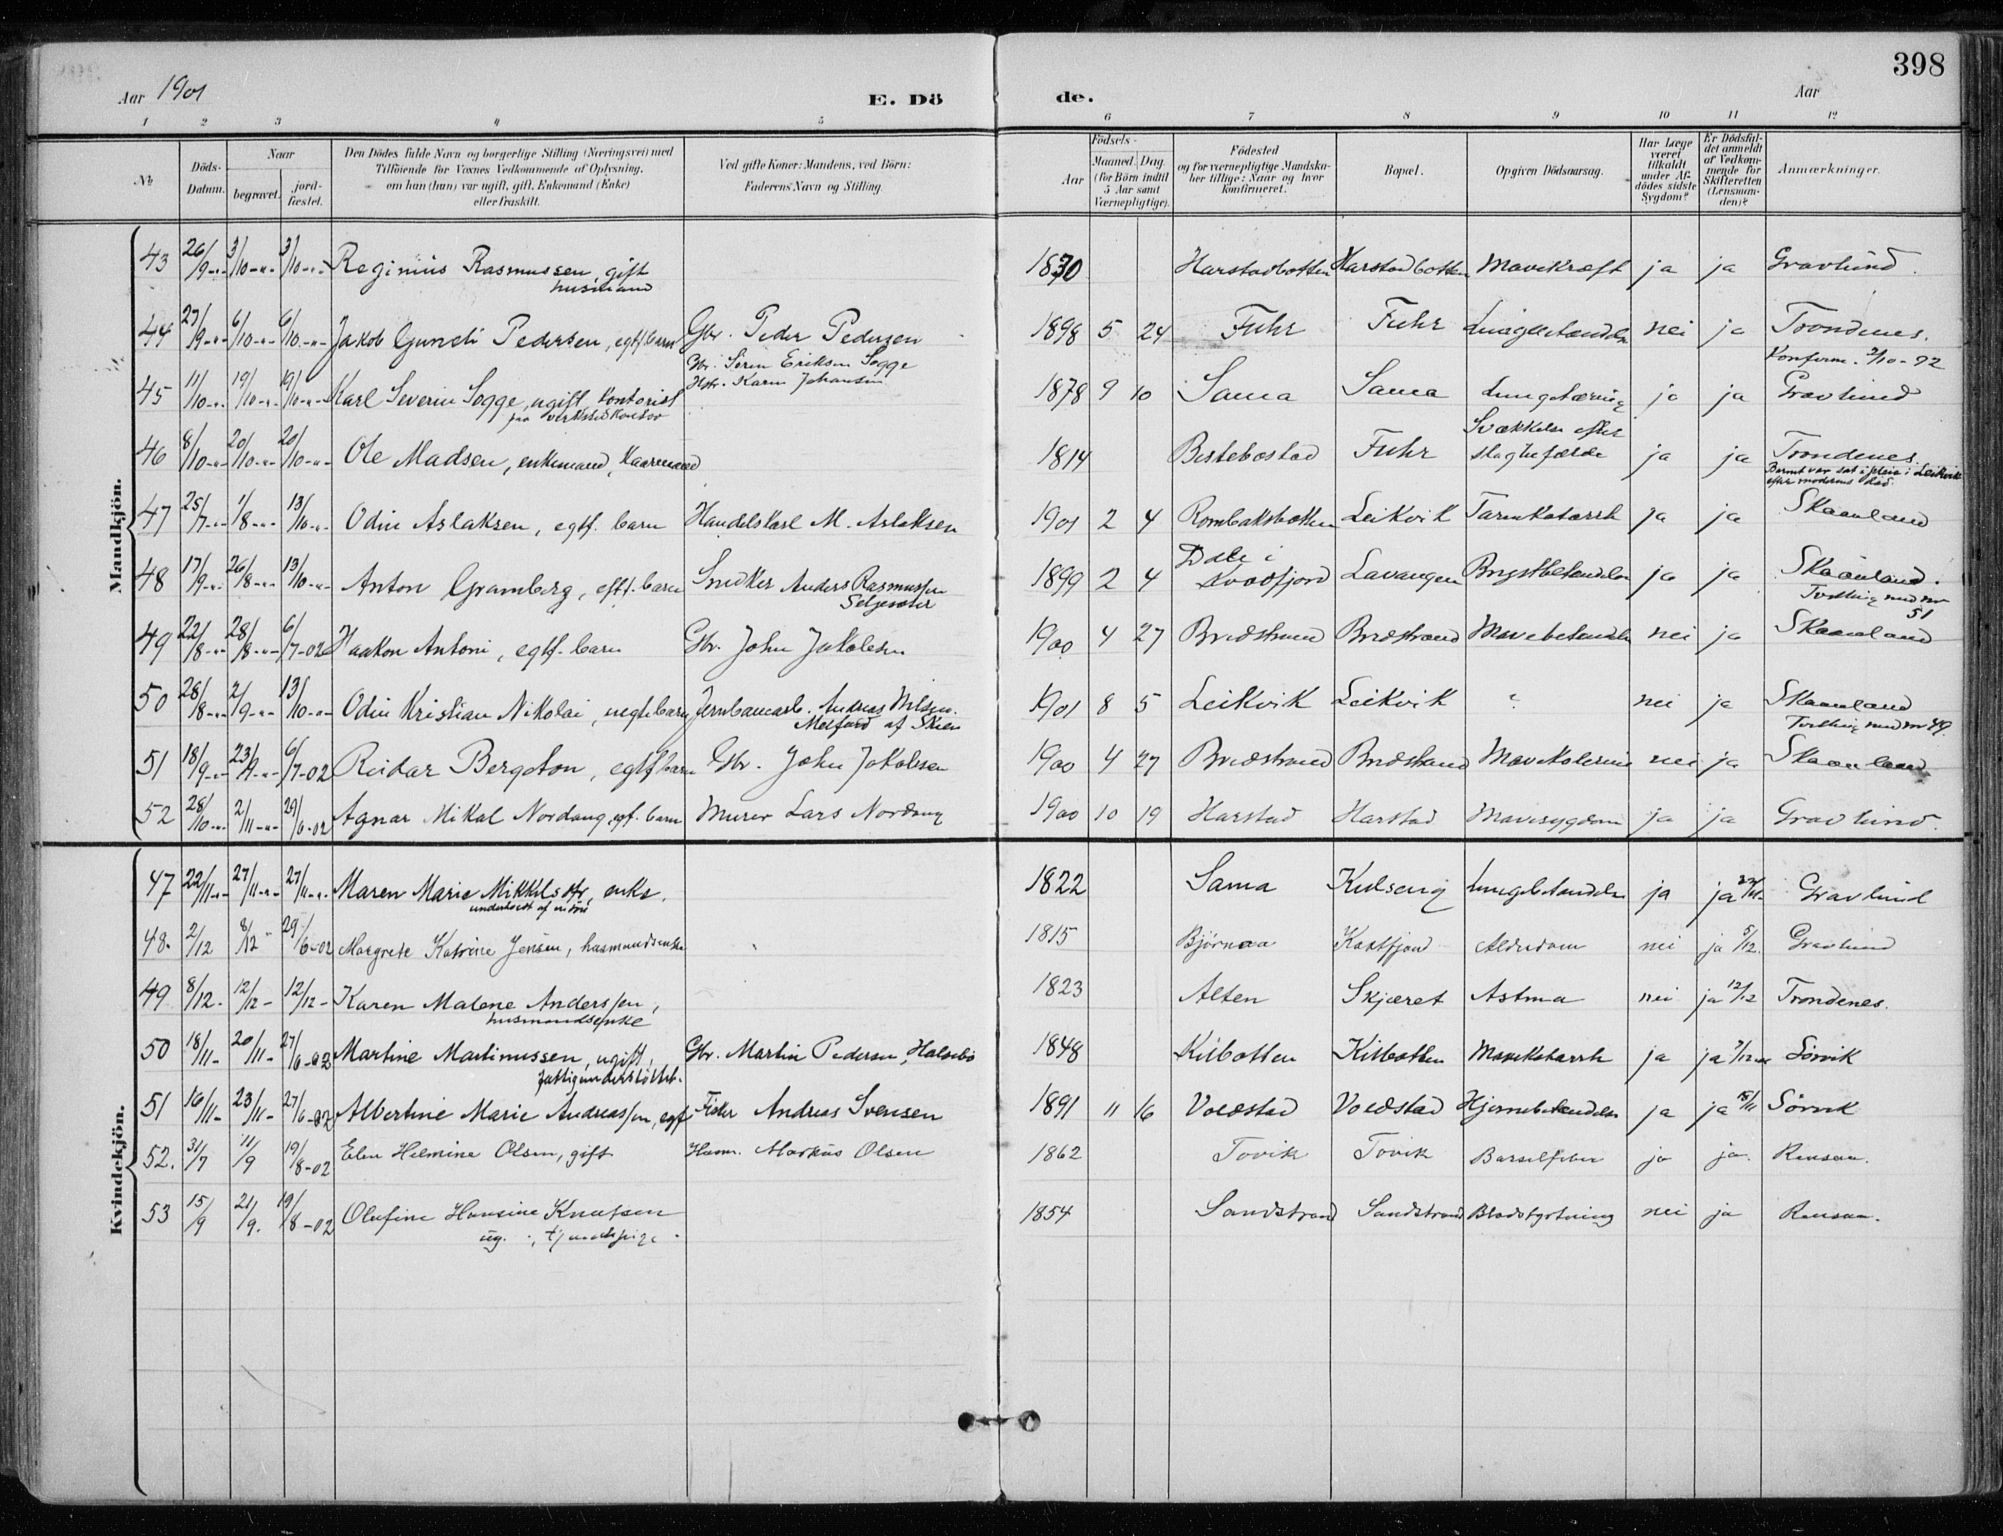 398
Aar 1901
E. Dö de.
Aar
1 2 3 4 5 6 7 8 9 10 11 12
No.
Döds-Datum.
Naar
begravet.
jordfæstet.
Den Dödes fulde Navn og borgerlige Stilling (Næringsvei) med Tilföiende for Voxnes Vedkommende af Oplysning, om han (hun) var ugift, gift, Enkemand (Enke) eller fraskilt.
Ved gifte Koner: Mandens, ved Börn: Faderens Navn og Stilling.
Födsels-
Aar
Maaned. Dag.
(for Börn indtil 5 Aar samt Værnepligtige).
Födested og for værnepligtige Mandskaber tillige: Naar og hvor konfirmeret.
Bopæl.
Opgiven Dödsaarsag.
Har Læge været tilkaldt under Afdödes sidste Sygdom?
Er Dödsfaldet anmeldt af Vedkommende for Skifteretten (Lensmanden)?
Anmærkninger.
Mandkjön.
43 26/9 -"- 3/10 -"- 3/10 -"- Reginius Rasmussen, gift husmand 1830 Harstadbotten Harstadbotten Mavekræft ja ja Gravlund.
44 27/9 -"- 6/10 -"- 6/10 -"- Jakob Gundi Pedersen, egtf barn Gbr. Peder Pedersen 1898 5 24 Fuhr Fuhr Lungebetændelse nei ja Trondenes.
45 11/10 -"- 19/10 -"- 19/10 -"- Karl Severin Sogge, ugift, kontorist paa verkstedkontor Gbr. Sören Eriksen Sogge Hstr. Karen Johansen 1878 9 10 Sama Sama Lungetæring ja ja Konfirm. 2/10-92 Gravlund
46 8/10 -"- 20/10 -"- 20/10 -"- Ole Madsen, enkemand, kaarmand 1814 Bestebostad Fuhr Svækkelse efter slagtilfælde ja ja Trondenes.
47 25/7 -"- 1/8 -"- 13/10 -"- Odin Aslaksen, egtf. barn Handelskarl M. Aslaksen 1901 2 4 Rombaksbotten Leikvik Tarmkatarrh ja ja Barnet var sat i pleie i Leikvik efter moderens död. Skaanland
48 17/9 -"- 26/8 -"- 13/10 -"- Anton Gramberg, egtf. barn Snedker Anders Rasmussen Seljesæter 1899 2 4 Dale i Kvædfjord Lavangen Brystbetændelse ja ja Skaanland.
49 22/8 -"- 28/8 -"- 6/7-02 Haakon Antoni, egtf. barn Gbr. John Jakobsen 1900 4 27 Bredstrand Bredstrand Mavebetændelse nei ja Tvilling med nr 51 Skaanland
50 28/8 -"- 2/9 -"- 13/10 -"- Odin Kristian Nikolai, uegte barn Jernbanearb. Andreas Nilsen Melfard af Skien 1901 8 5 Leikvik Leikvik ? nei ja Skaanland
51 18/9 -"- 23/9 -"- 6/7-02 Reidar Bergoton, egtf barn Gbr. John Jakobsen 1900 4 27 Bredstrand Bredstrand Mavekolerine nei ja Tvilling med nr 49. Skaanland
52 28/10 -"- 2/11 -"- 29/6-02 Agnar Mikal Nordang, egf. barn Murer Lars Nordang 1900 10 19 Harstad Harstad Mavesygdom ja ja Gravlund.
Kvindekjön.
47 22/11 -"- 27/11 -"- 27/11 -"- Maren Marie Mikkelsdtr, enke. 1822 Sama Kulseng Lungebetændelse ja ja Gravlund
48. 2/12 8/12 " 29/6-02 Margrete Katrine Jensen, husmandsenke 1815 Bjørnaa Kastfjord Alderdom nei ja 5/12. Gravlund
49 8/12 - 12/12 - 12/12 - Karen Malene Anderssen, husmandsenke 1823 Alten Skjæret Astma nei ja 12/12 Trondenes.
50 18/11 - 20/11 - 27/6-02 Martine Martinussen, ugift, fattigunderstöttet. Gbr. Martin Pedersen, Halsebø 1848 Kilbotten Kilbotten Mavekatarrh ja ja 7/12 Sörvik
51 16/11 - 23/11 - 27/6-02 Albertine Marie Andreassen, egf Fisker Andreas Svensen 1891 11 16 Voldstad Voldstad Hjernebetændelse ja ja 18/11 Sörvik
52. 31/7 11/9 19/8-02 Elen Helmine Olsen, gift Husm. Markus Olsen 1862 Tovik Tovik Barselfeber ja ja. Rensaa.
53 15/9 21/9. 19/8-02 Olufine Hansine Knutsen ug. tjenestepige. 1854 Sandstrand Sandstrand Blodstyrtning nei ja Rensaa.